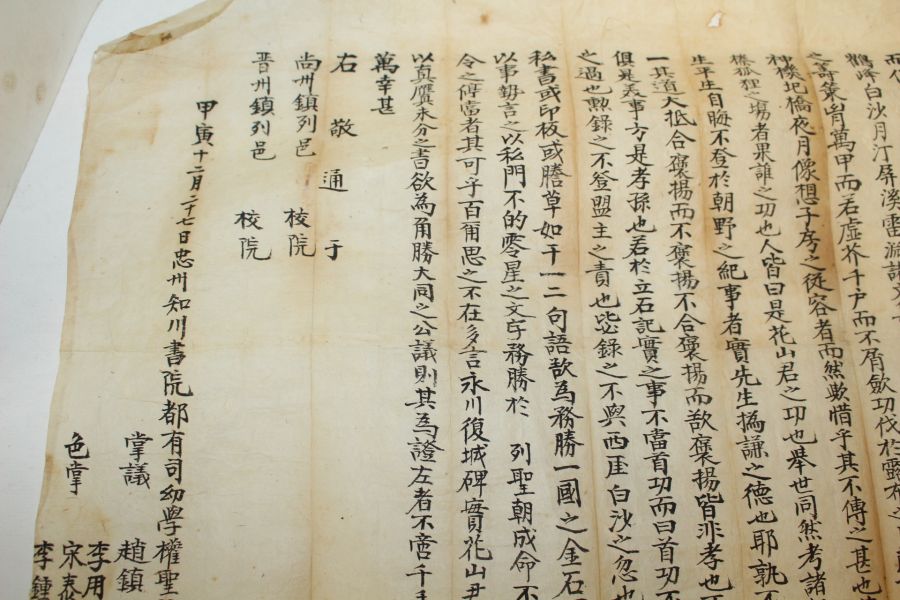 而
鶴峰白沙月汀屛溪雷淵諸
之籌策胷萬甲而若虛芥千戶而不屑歛功伐於露布之
神機圯橋夜月像想子房之從容者而然歟惜乎其不傳之甚也
榛狐狸之場者果誰之功也人皆曰是花山君之功也舉世同然考諸
生平生自晦不登於朝野之紀事者實先生撝謙之德也耶孰不
一其道大抵合褒揚而不褒揚不合褒揚而欲褒揚皆非孝也
俱是美事方是孝孫也若於立石記實之事不當首功而曰首功不
之過也勲錄之不登盟主之責也毖錄之不與西厓白沙之忽也
私書或印板或謄草如干一二句語欲為務勝一國之金石
以事勢言之以私門不的零星之文字務勝於 列聖朝成命不
令之傳當者其可乎百爾思之不在多言永川復城碑實花山君
以真贋未分之書欲為角勝大同之公議則其為證左者不啻千
萬幸甚
右敬通于
尙州鎮列邑 校院
晋州鎮列邑 校院
甲寅十二月二十七日忠州知川書院都有司幼學權聖
掌議 趙鎮
李用
色掌 宋泰
李鍾